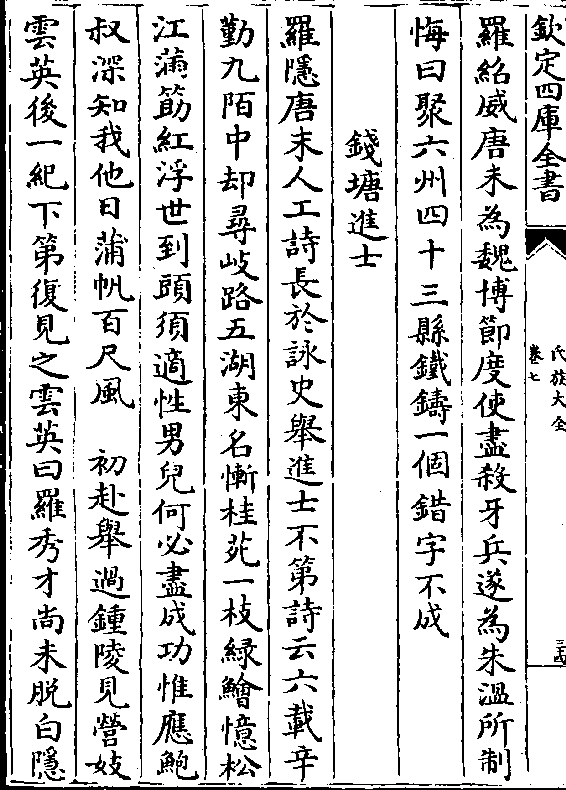 欽定四庫全書
氏族大全
卷七
羅紹威唐末為魏博節度使盡殺牙兵遂為朱溫所制
悔曰聚六州四十三縣鐵鑄一個錯字不成
錢塘進士
羅隱唐末人工詩長於詠史舉進士不第詩云六載辛
勤九陌中却尋岐路五湖東名慚桂苑一枝緑鱠憶松
江滿筯紅浮世到頭須適性男兒何必盡成功惟應鮑
叔深知我他日蒲帆百尺風　初赴舉過鍾陵見營妓
雲英後一紀下第復見之雲英曰羅秀才尚未脱白隱